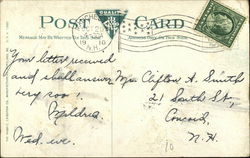 POST CARD
QUALITY
MESSAGE MAY BE WRITTEN ON THIS SIDE
ADDRESS ONLY ON THIS SIDE
19 10
N.H.
Your letter received
and shall answer
very soon.
Mildred
Wed. eve.
Mrs Clifton A. Smith
21 South St,
Concord,
N. H.
10